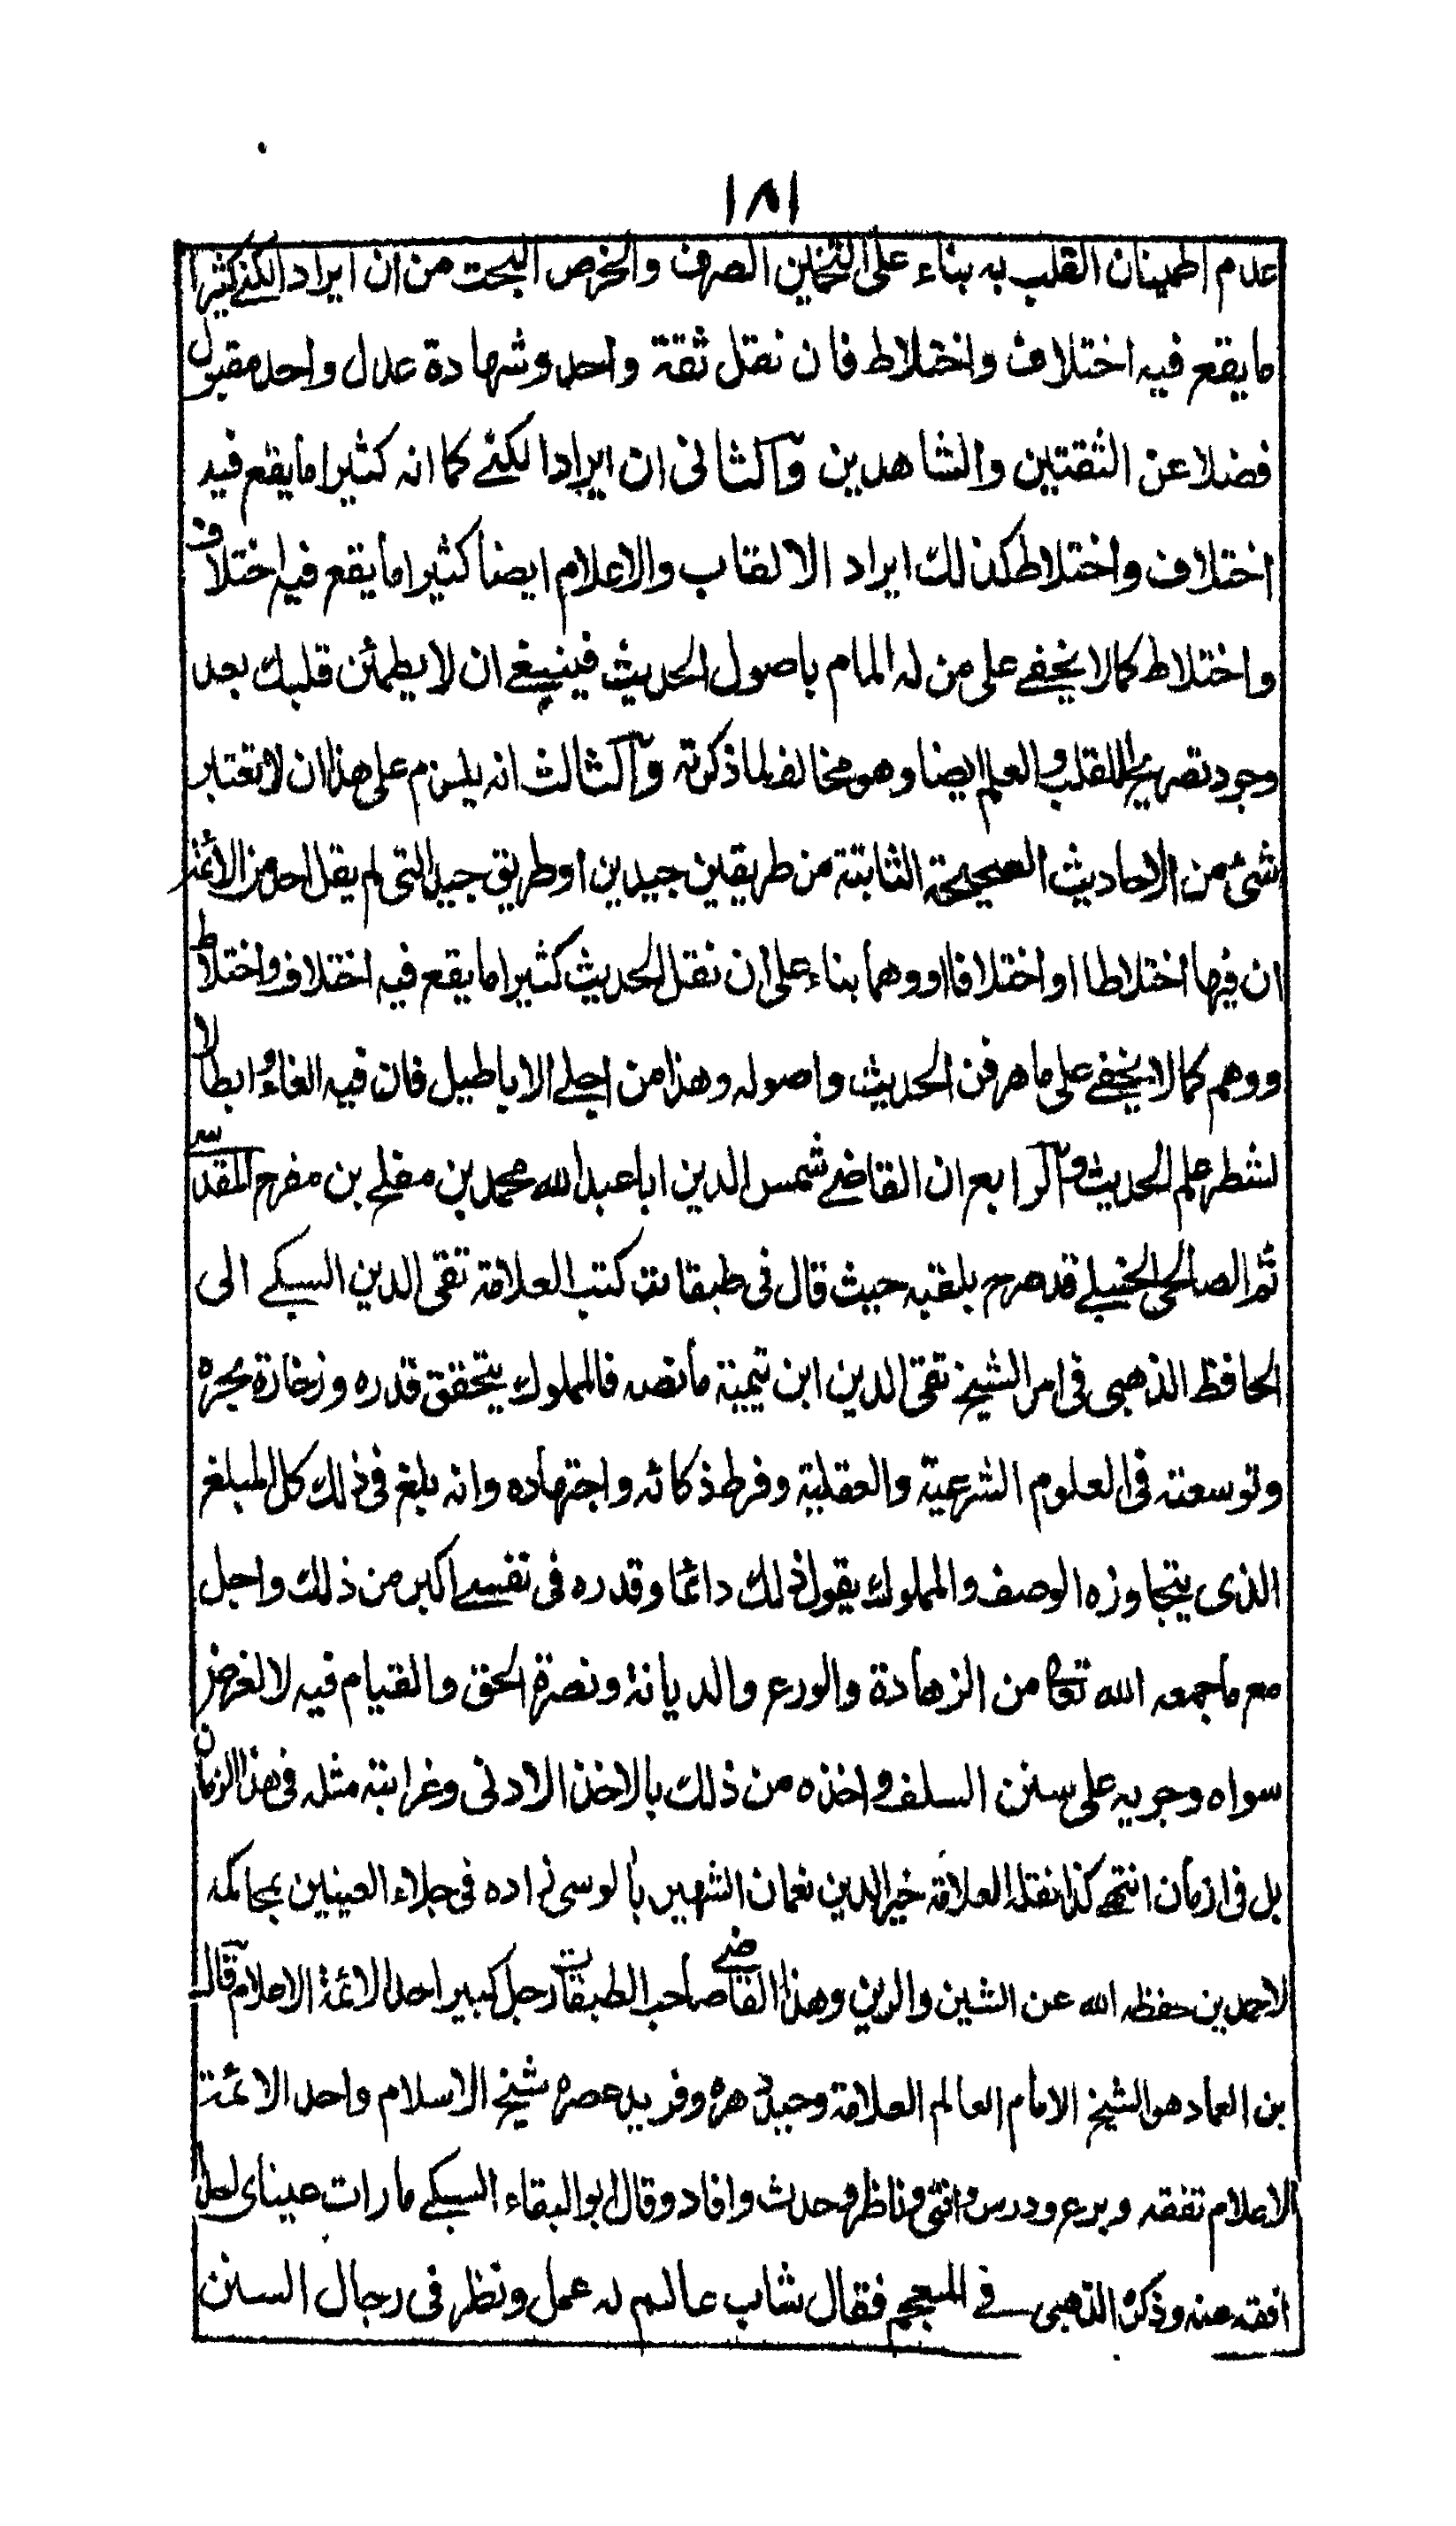 ١٨١
عدم اطمينان القلب به بناء على التخمين الصرف والخرص البحت من ان ايراد الكنى كثيرا
ما يقع فيه اختلاف واختلاط فان نقل ثقة واحد وشهادة عدل واحد مقبول
فضلا عن الثقتين والشاهدين والثانى ان ايراد الكنے كما انه كثيرا ما يقع فيه
اختلاف واختلاط كذلك ايراد الالقاب والاعلام ايضا كثيرا ما يقع فيه اختلاف
واختلاط كما لا يخفے على من له المام باصول الحديث فينبغے ان لا يطمئن قلبك بعد
وجود تصريح اللقب والعلم ايضا وهو مخالف لما ذكرته والثالث انه يلزم على هذا ان لا تعتبر
شئ من الاحاديث الصحيحة الثابتة من طريقين جيدين او طريق جيد التى لم يقل احد من الائمة
ان فيها اختلاطا او اختلافا او وهما بناء على ان نقل الحديث كثيرا ما يقع فيه اختلاف واختلاط
ووهم كما لا يخفے على ماهر فن الحديث واصوله وهذا من اجلے الاباطيل فان فيه الغاء وابطالا
لشطر علم الحديث والرابع ان القاضے شمس الدين ابا عبد الله محمد بن مفلح بن مفرح المقدسے
ثم الصالحى الحنبلے قد صرح بلقبه حيث قال فى طبقاته كتب العلامة تقى الدين السبكے الى
الحافظ الذهبى فى امر الشيخ تقى الدين ابن تيمية ما نصه فالمملوك يتحقق قدره وزخارة بحره
وتوسعته فى العلوم الشرعية والعقلية وفرط ذكائه واجتهاده وانه بلغ فى ذلك كل المبلغ
الذى يتجاوزه الوصف والمملوك يقول ذلك دائما وقدره فى نفسے اكبر من ذلك واجل
مع ما جمعه الله تعا من الزهادة والورع والديانة ونصرة الحق والقيام فيه لا لغرض
سواه وجريه على سنن السلف واخذه من ذلك بالاخذ الادنى وغرابة مثله فى هذا الزمان
بل فى ازمان انتهى كذا نقله العلامة خير الدين نعمان الشهير بآلوسى زاده فى جلاء العينين بمحاكمة
الاحمدين حفظه الله عن الشين والرين وهذا القاضے صاحب الطبقات رجل كبير احد الائمة الاعلام قال
بن العماد هو الشيخ الامام العالم العلامة وحيد دهره وفريد عصره شيخ الاسلام واحد الائمة
الاعلام تفقه وبرع ودرس وافتى وناظر وحدث وافاد وقال ابو البقاء السبكے ما رات عيناى احدا
افقه منه وذكره الذهبى فے المعجم فقال شاب عالم له عمل ونظر فى رجال السنن